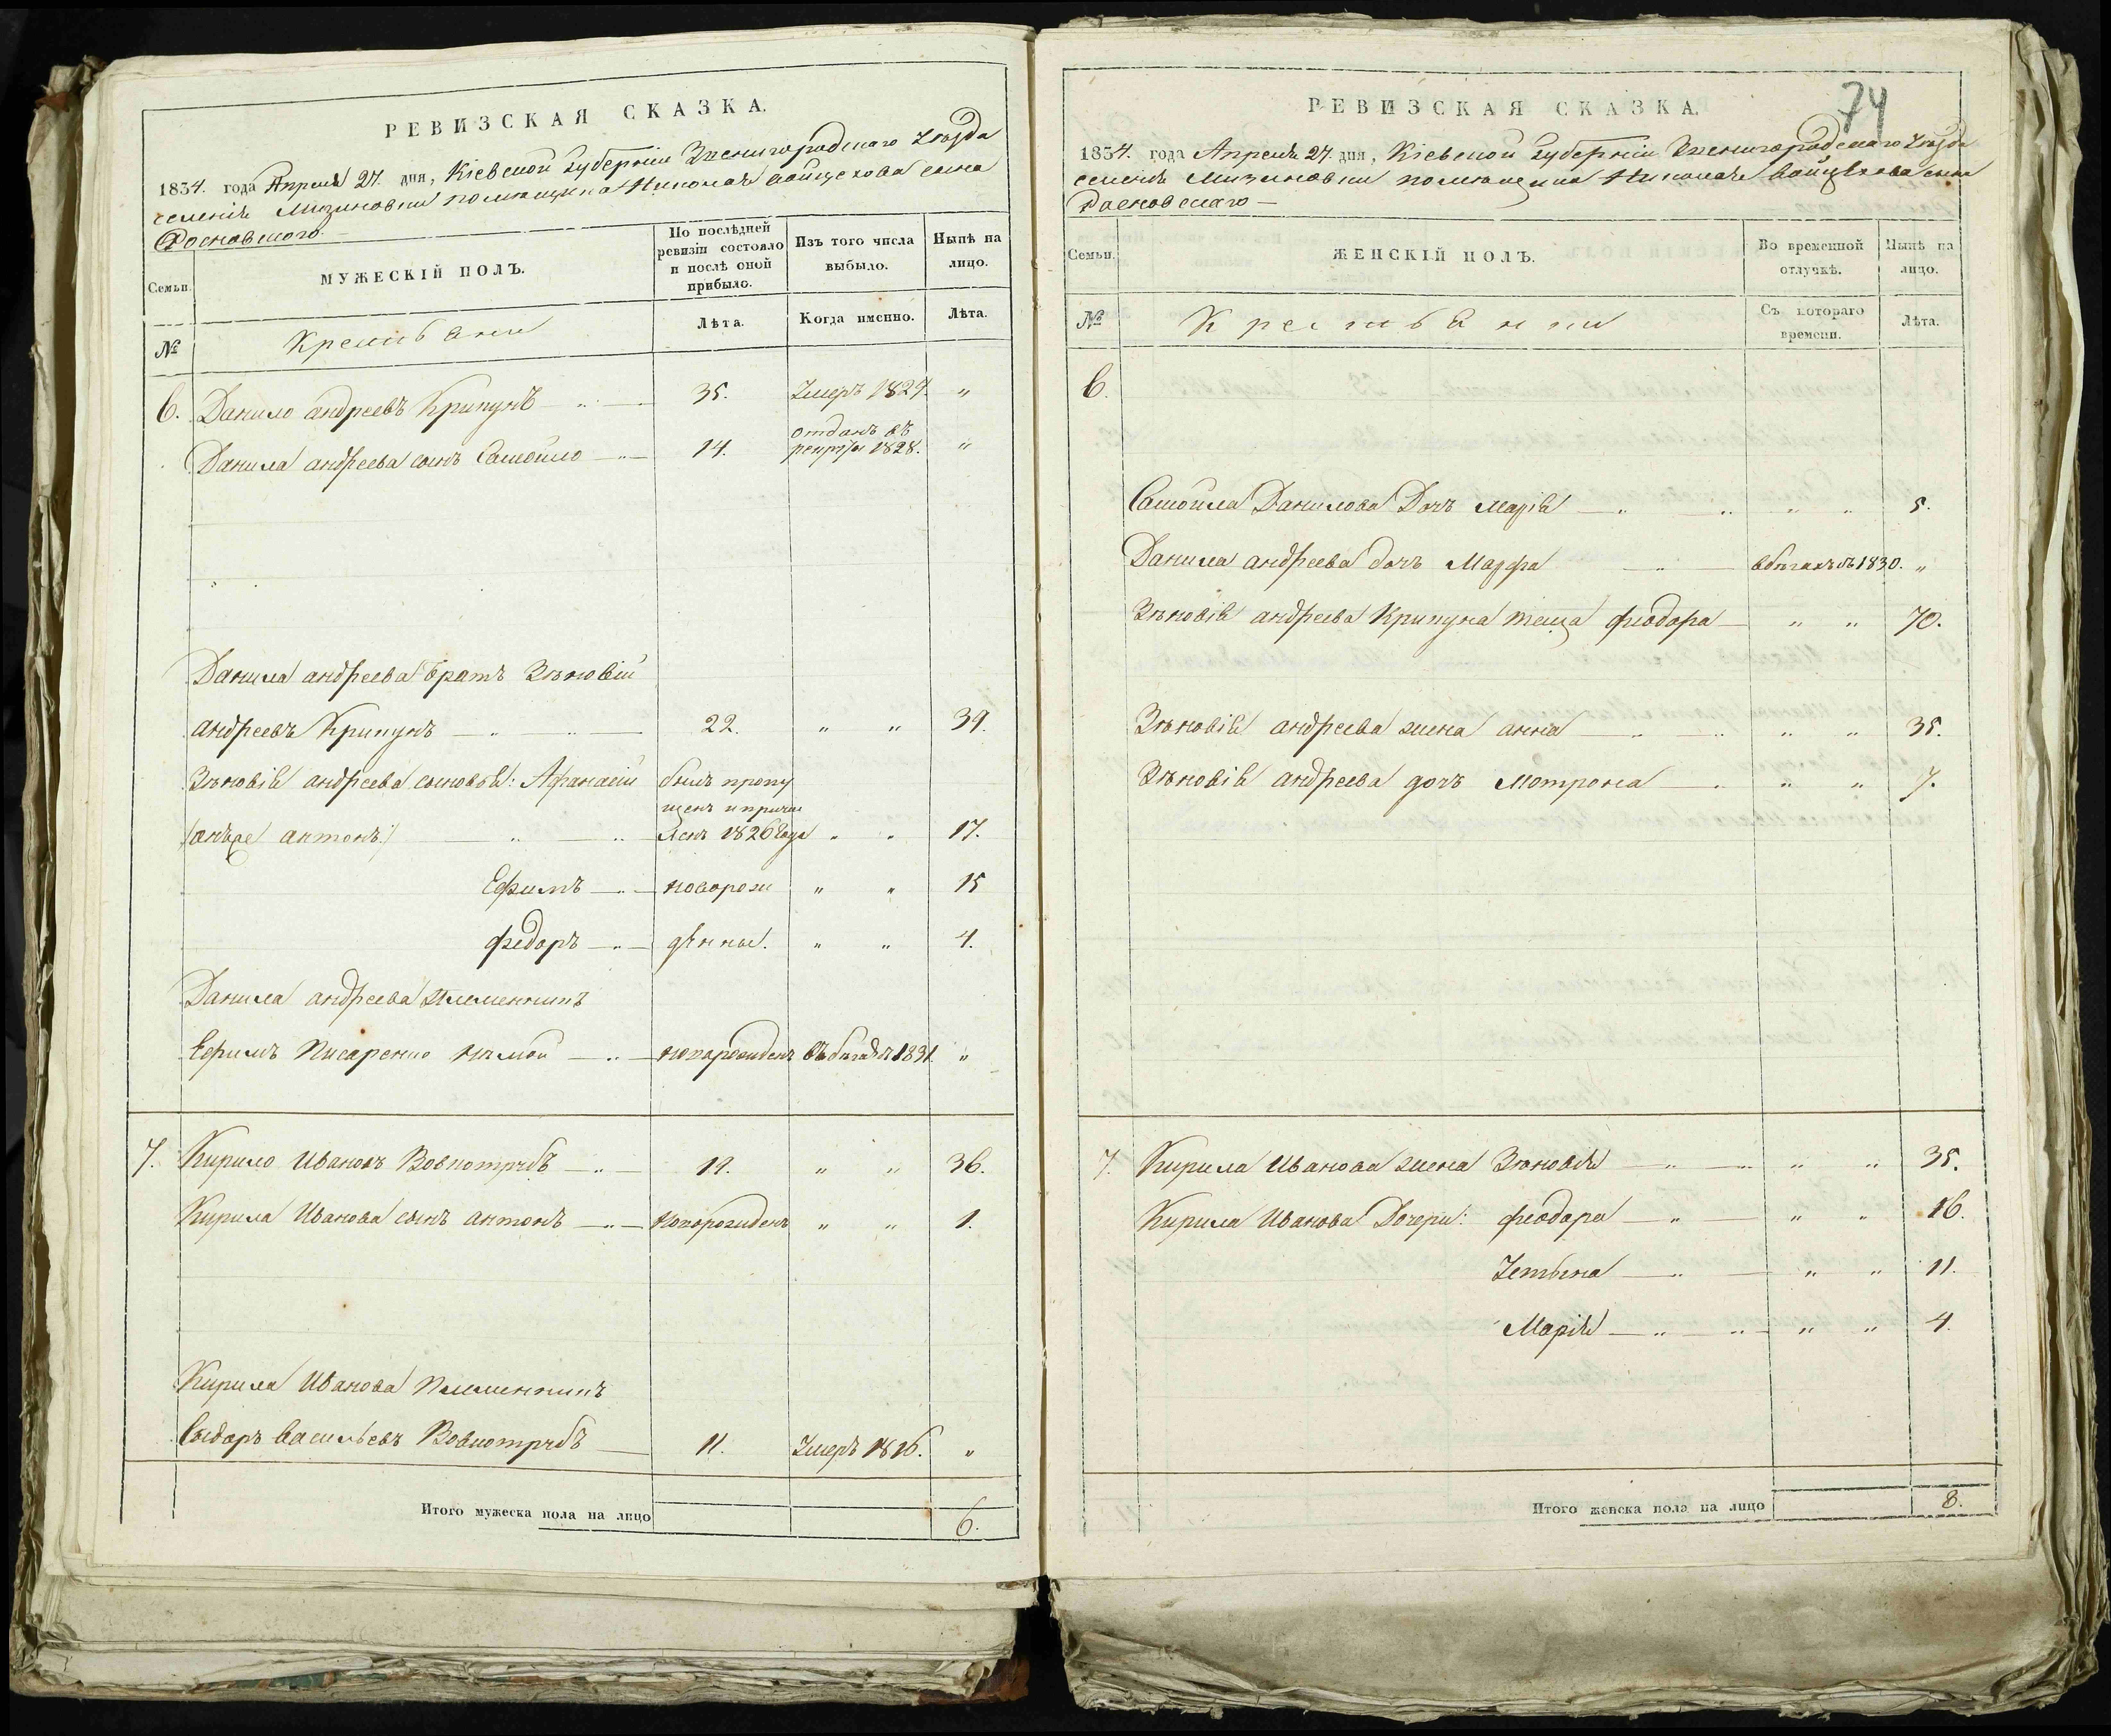 РЕВИЗСКАЯ СКАЗКА.
1834. года Апреля 27. дня, Кіевской губерніи Звенигородскаго уѣзда
селенія Мизиновки помѣщика Николая Войцехова сына
Росновского.
Семьи.
МУЖЕСКІЙ ПОЛЪ.
По послѣдней ревизіи состояло и послѣ оной прибыло.
Изъ того числа выбыло.
Нынѣ на лицо.
№
Крестьяни
Лѣта.
Когда именно.
Лѣта.
6. Данило андреевъ Крипунъ 35. Умеръ 1827. "
Данила андреева сынъ Самойло 14. отданъ въ рекруты 1828. "
Данила андреева братъ Зѣновій
андреевъ Крипунъ 22. " " 39.
Зѣновія андреева сыновья: Афанасій былъ пропу
щенъ и причи
/онъже антонъ:/ сленъ 1826 года " " 17.
Ефимъ новорож " " 15
федоръ денные. " " 4.
Данила андреева Племенникъ
Ефимъ Писаренко нѣмой новорожденъ въ бѣгахъ съ 1831. "
7. Кирило Ивановъ Вовкотрубъ 19. " " 36.
Кирила Иванова сынъ антонъ новорожденъ " " 1.
Кирила Иванова Племенникъ
Сидоръ васильевъ Вовкотрубъ 11. Умеръ 1816. "
Итого мужеска пола на лицо 6.
74
РЕВИЗСКАЯ СКАЗКА.
1834. года Апреля 27. дня, Кіевской губерніи Звенигородскаго уѣзда
селенія Мизиновки помѣщика Николая войцехова сына
Росновскаго
Семьи.
ЖЕНСКІЙ ПОЛЪ.
Во временной отлучкѣ.
Нынѣ на лицо.
№
Крестьянки
Съ котораго времени.
Лѣта.
6.
Самойла Данилова Дочь Марія " " 5.
Данила андреева дочь Марфа в бѣгахъ съ 1830. "
Зѣновія андреева Крипуна теща феодора " " 70.
Зѣновія андреева жена анна " " 35.
Зѣновія андреева дочь Мотрона " " 7.
7. Кирила Иванова жена Зѣновія " " 35.
Кирила Иванова Дочери: феодора " " 16.
Устына " " 11.
Марія " " 4.
Итого женска пола на лицо 8.